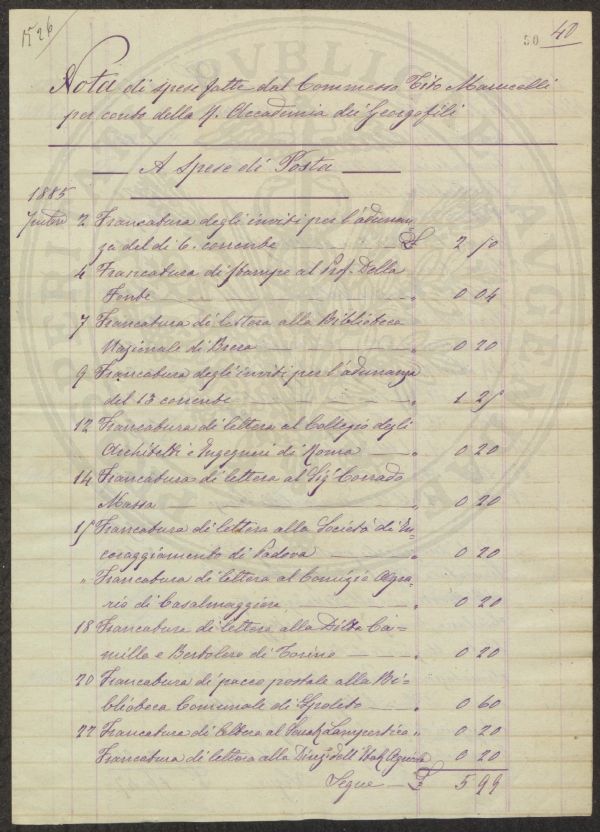 1526
50 40
Nota di spese fatte dal Commesso Tito Marucelli
per conto della R. Accademia dei Georgofili
A Spese di Posta
1885
2 Francatura degli inviti per l'adunan-
za del dì 6. corrente £ 2 50
4 Francatura di stampe al Prof. Della
Fonte " 0 04
7 Francatura di lettera alla Biblioteca
Nazionale di Brera " 0 20
9 Francatura degli inviti per l'adunanza
del 13 corrente " 1 25
12 Francatura di lettera al Collegio degli
Architetti e Ingegneri di Roma " 0 20
14 Francatura di lettera al Sig. Corrado
Massa " 0 20
15 Francatura di lettera alla Società di In-
coraggiamento di Padova " 0 20
" Francatura di lettera al Comizio Agra-
rio di Casalmaggiore " 0 20
18 Francatura di lettera alla Ditta Ca-
milla e Bertolero di Torino " 0 20
20 Francatura di pacco postale alla Bi-
blioteca Comunale di Spoleto " 0 60
22 Francatura di lettera al Lampertico " 0 20
Francatura di lettera alla Direz. dell' Ital. Agricola 0 20
Segue £ 5 99